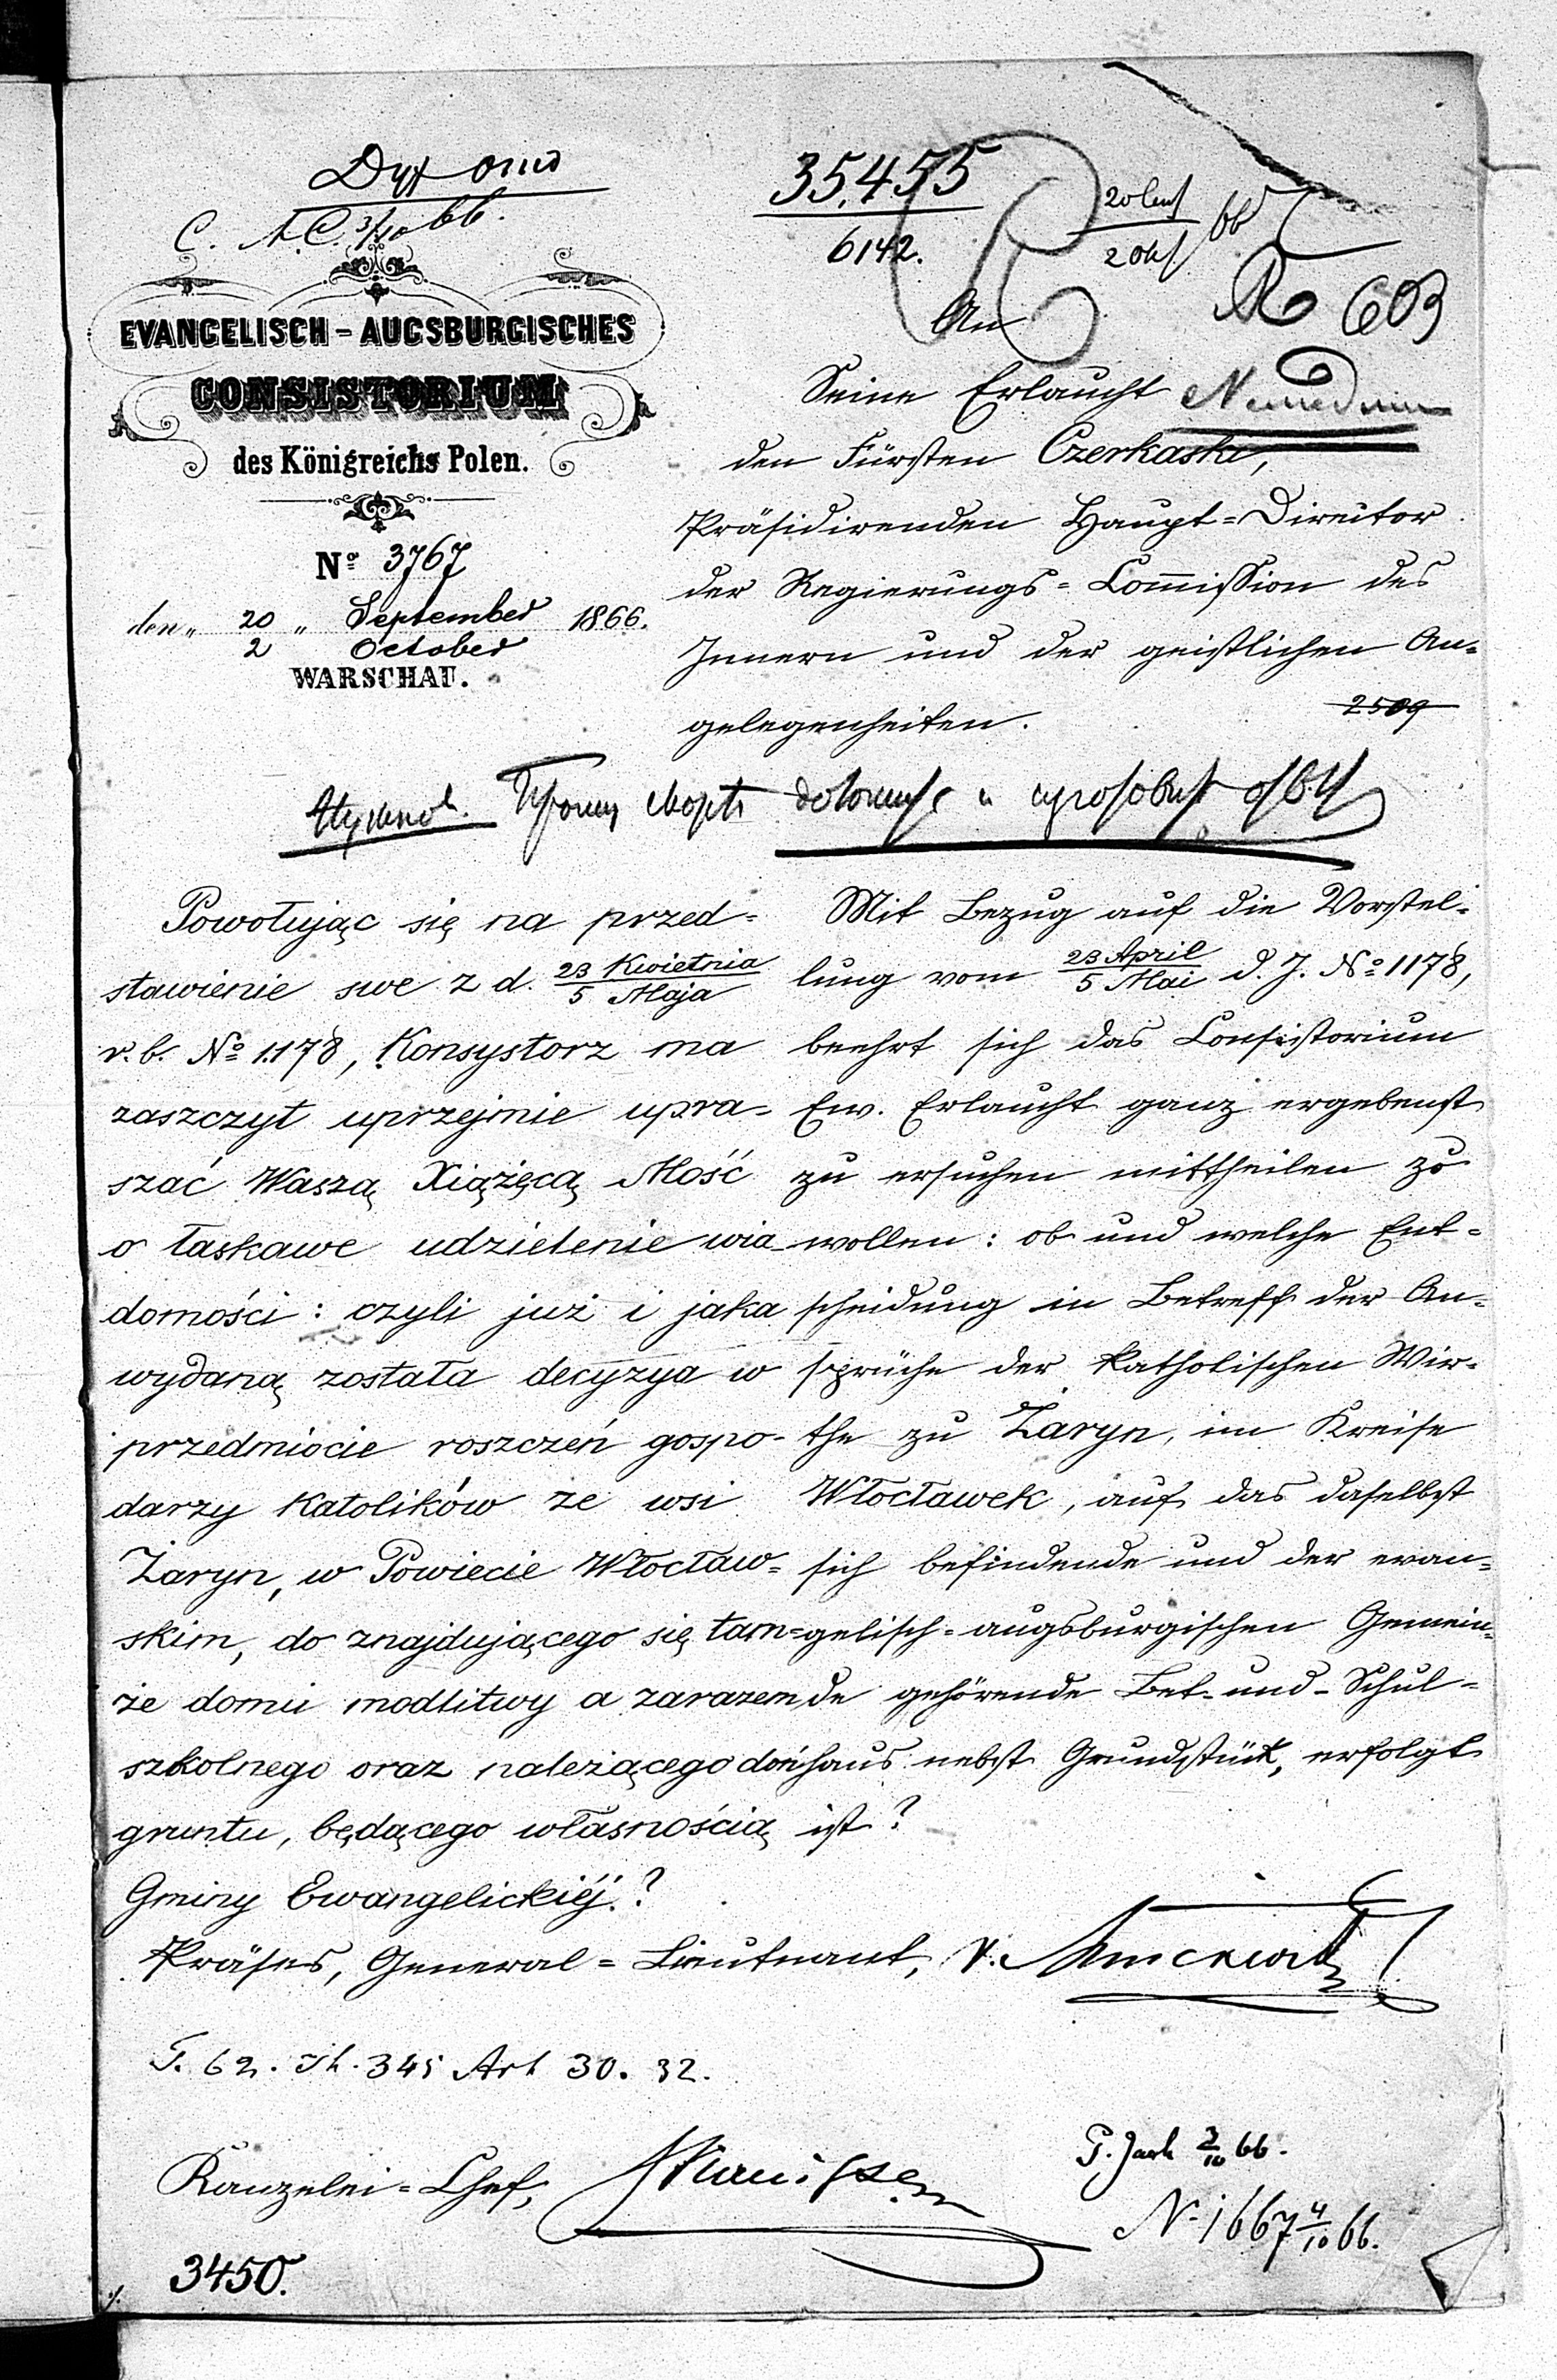 C. A. C. 3/10 66.
35,455
6142.
EVANGELISCH-AUGSBURGISCHES
CONSISTORIUM
des Königreichs Polen.
No 3767
den „ 20 „ September 1866.
2 October
WARSCHAU.
An
603
Seine Erlaucht
den Fürsten Czerkaski,
Präsidirenden Haupt=Director
der Regierungs=Commission des
Innern und der geistlichen An=
gelegenheiten.
2509
Powołując się na przed=
stawienie swe z d. 23 Kwietnia / 5 Maja
r. b. No 1178, Konsystorz ma
zaszczyt uprzejmie upra=
szać Waszą Xiążęcą Mość
o łaskawe udzielenie wia_
domości: czyli już i jaka
wydaną została decyzya w
przedmiocie roszczeń gospo-
darzy Katolików ze wsi
Żaryn, w Powiecie Włocław=
skim, do znajdującego się tam=
że domu modlitwy a zarazem
szkolnego oraz należącego doń
gruntu, będącego własnością
Gminy Ewangelickiéj?
Mit Bezug auf die Vorstel=
lung vom 23 April / 5 Mai d. J. No 1178,
beehrt sich das Consistorium
Ew. Erlaucht ganz ergebenst
zu ersuchen mittheilen zu
wollen: ob und welche Ent=
scheidung in Betreff der An=
sprüche der Katholischen Wir=
the zu Żaryn, im Kreise
Włocławek, auf das daselbst
sich befindende und der evan=
gelisch=augsburgischen Gemein=
de gehörende Bet-und-Schul=
haus nebst Grundstück, erfolgt
ist?
Präses, General=Lieutnant,
T. 62. 345 Art 30. 32.
Kanzelei=Chef,
3/10 66.
N. 1667 4/10 66.
3450.